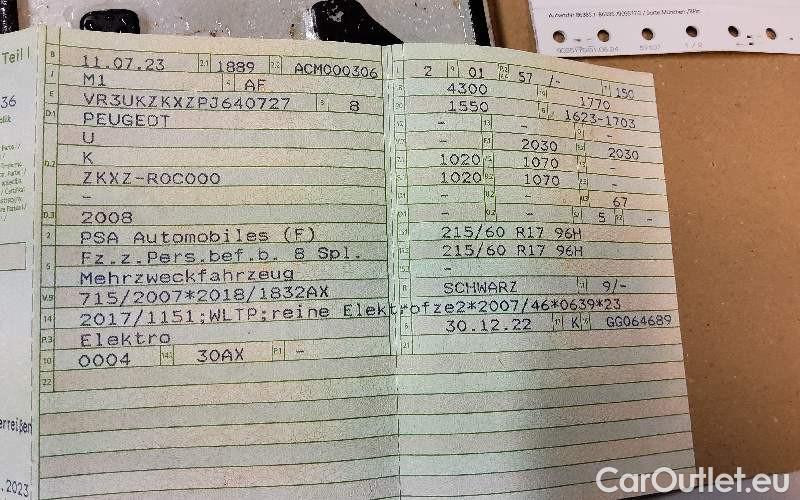 Teil I
B 11.07.23 2.1 1889 2.2 ACM000306
J M1 4 AF
E VR3UKZKXZPJ640727 3 8
D.1 PEUGEOT
U
D.2 K
ZKXZ-ROC000
-
D.3 2008
2 PSA Automobiles (F)
5 Fz.z.Pers.bef.b. 8 Spl.
Mehrzweckfahrzeug
V.9 715/2007*2018/1832AX
14 2017/1151;WLTP;reine Elektrofze2*2007/46*0639*23
P.3 Elektro
10 0004 14.1 30AX P.1 -
22
36
erreißen
.2023
2 9 01 57 /- 150
4300 1770
1550 1623-1703
- - -
- 2030 2030
1020 1070 -
1020 1070 -
- - 67
- - 5 -
215/60 R17 96H
215/60 R17 96H
-
SCHWARZ 9/-
30.12.22 K GG064689
21
CarOutlet.eu